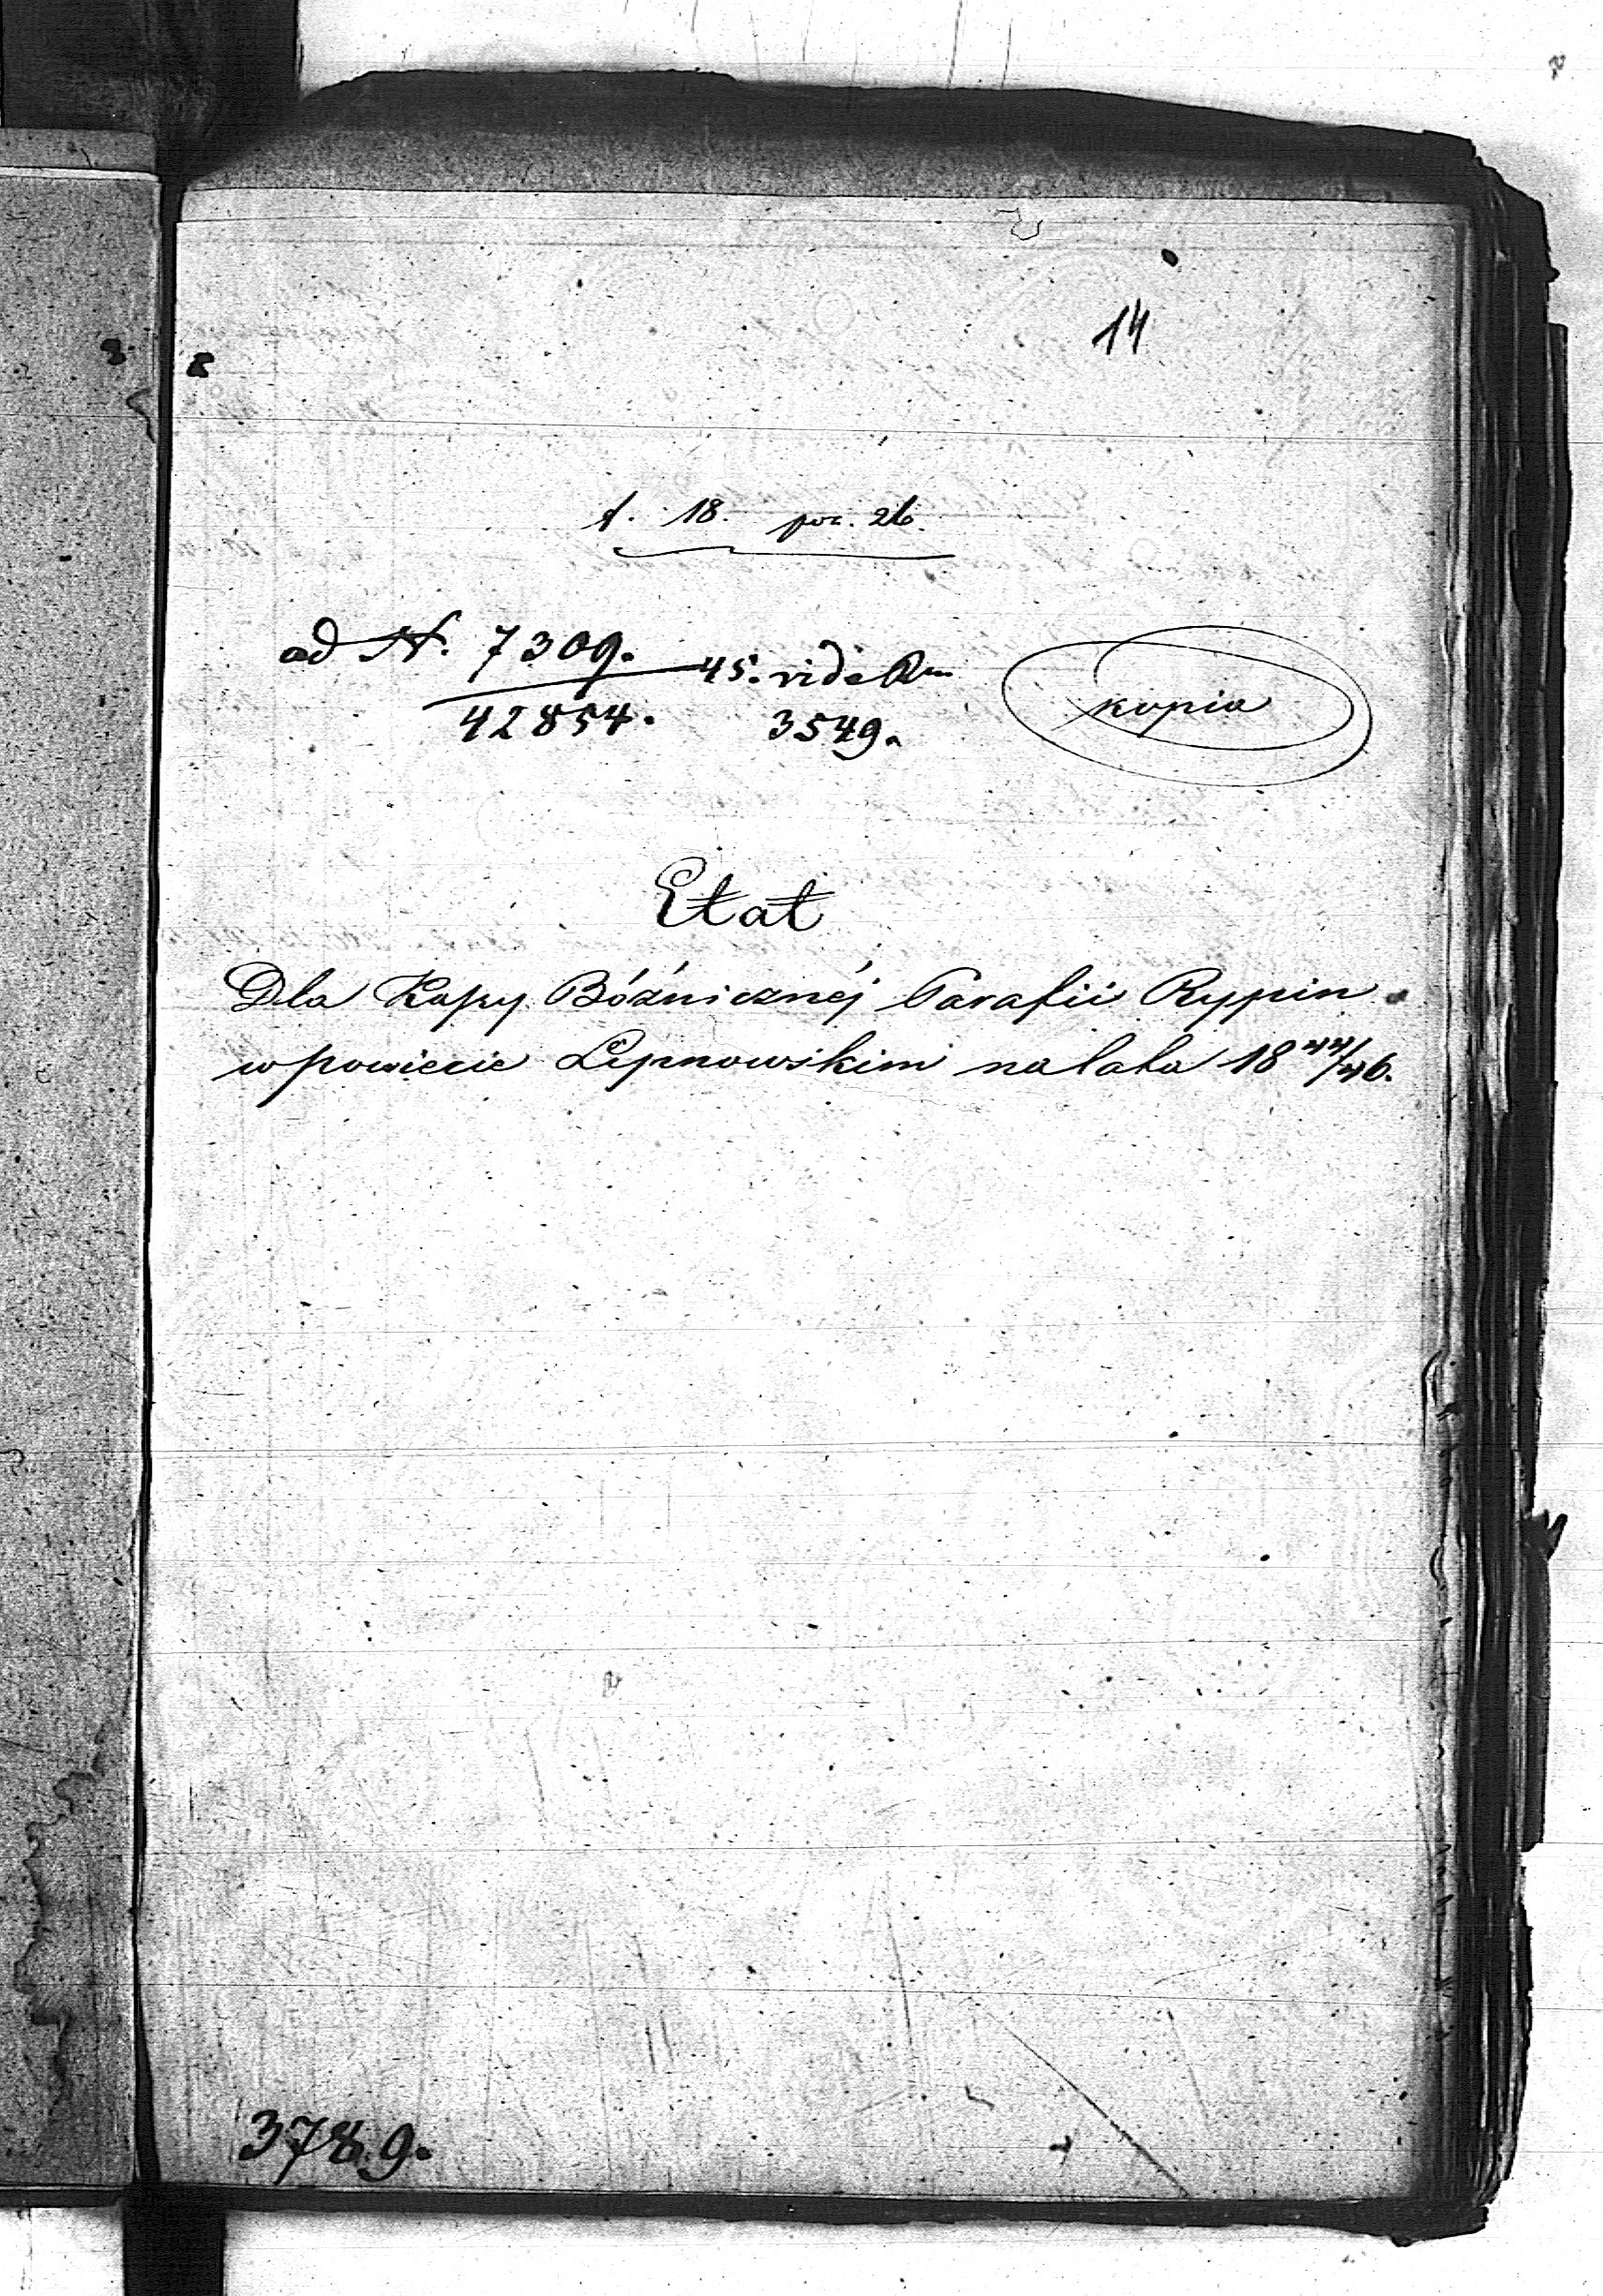 14
f. 18. poz. 26.
ad N. 7309. 45. vide
42854. 3549.
kopia
Etat
Dla Kassy Bóźnicznéj Parafii Rypin
w powiecie Lipnowskim na lata 18 44/46.
3789.